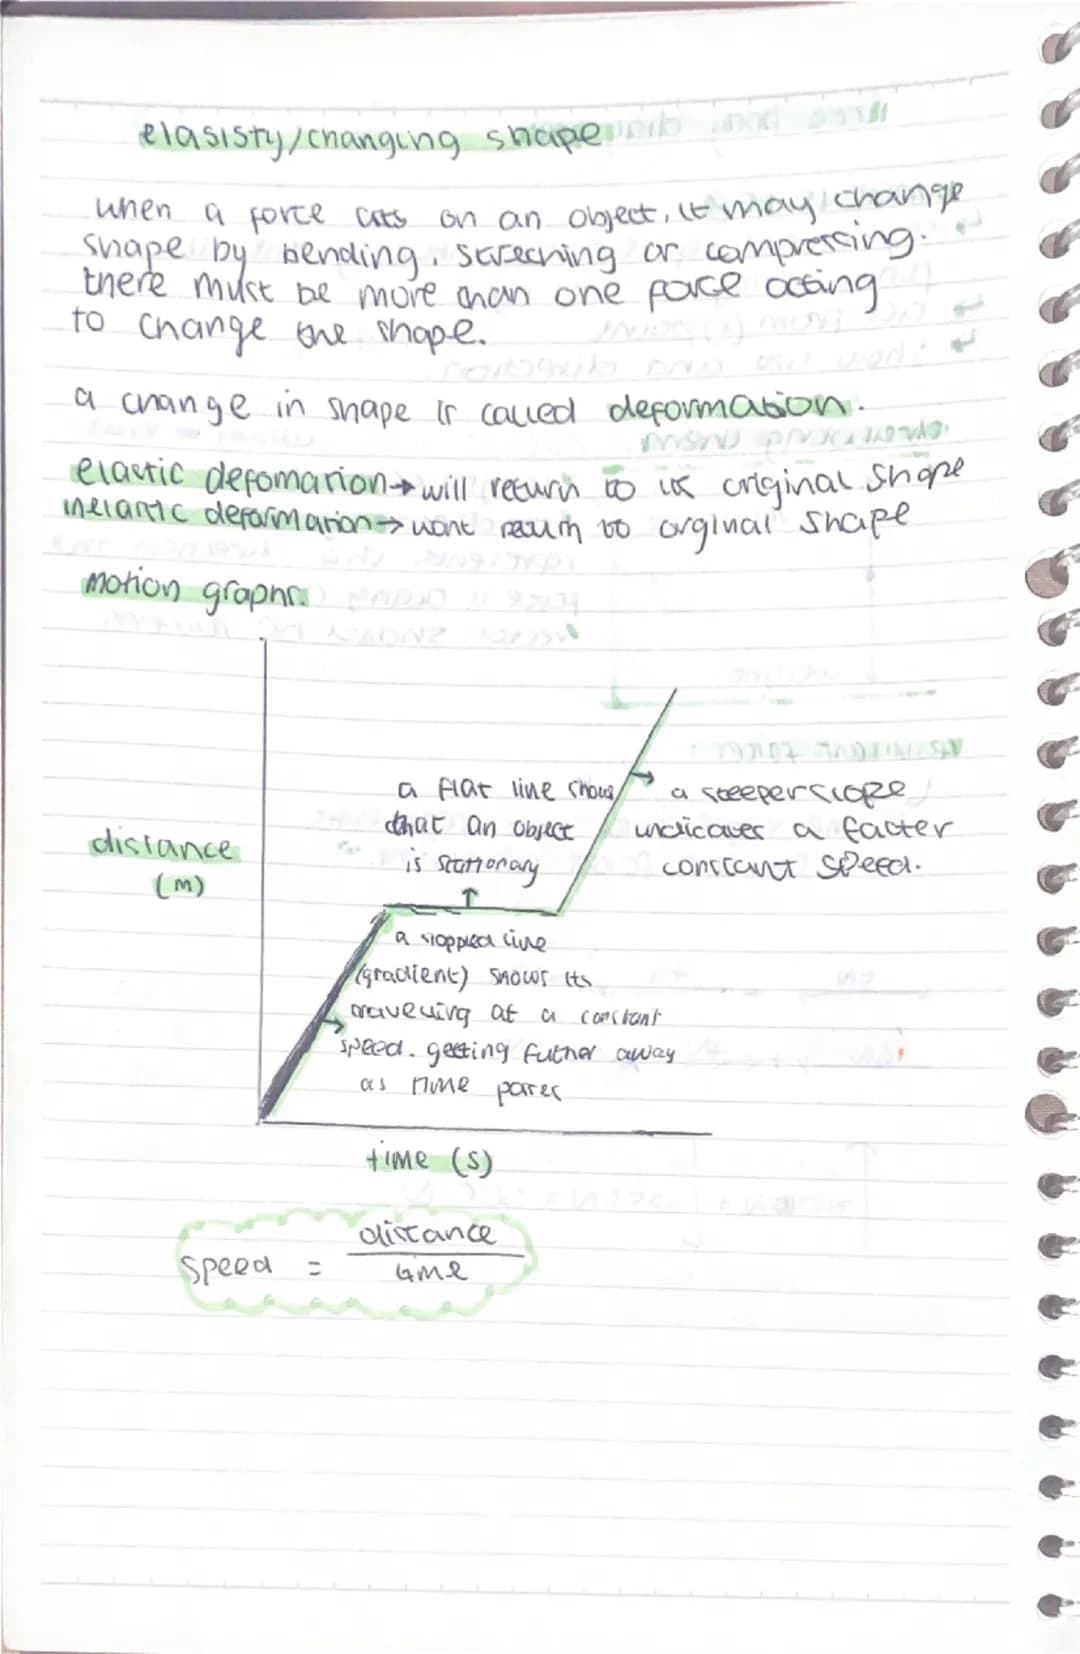 elasisty/changing shape
when a force acts on an object, it may change
shape by bending, streching or compressing.
there must be more than one force acting
to change the shape.
a change in shape is called deformation.
elastic defomation → will return to its original shape
inelastic deformation → wont return to orginal shape
motion graphs.
a flat line shows
that an object
is stationary
a steeper slope
indicates a faster
constant speed.
distance
(m)
a slopped line
(gradient) shows its
moveving at a constant
speed. getting futher away
as time passes
time (s)
speed = distance
time